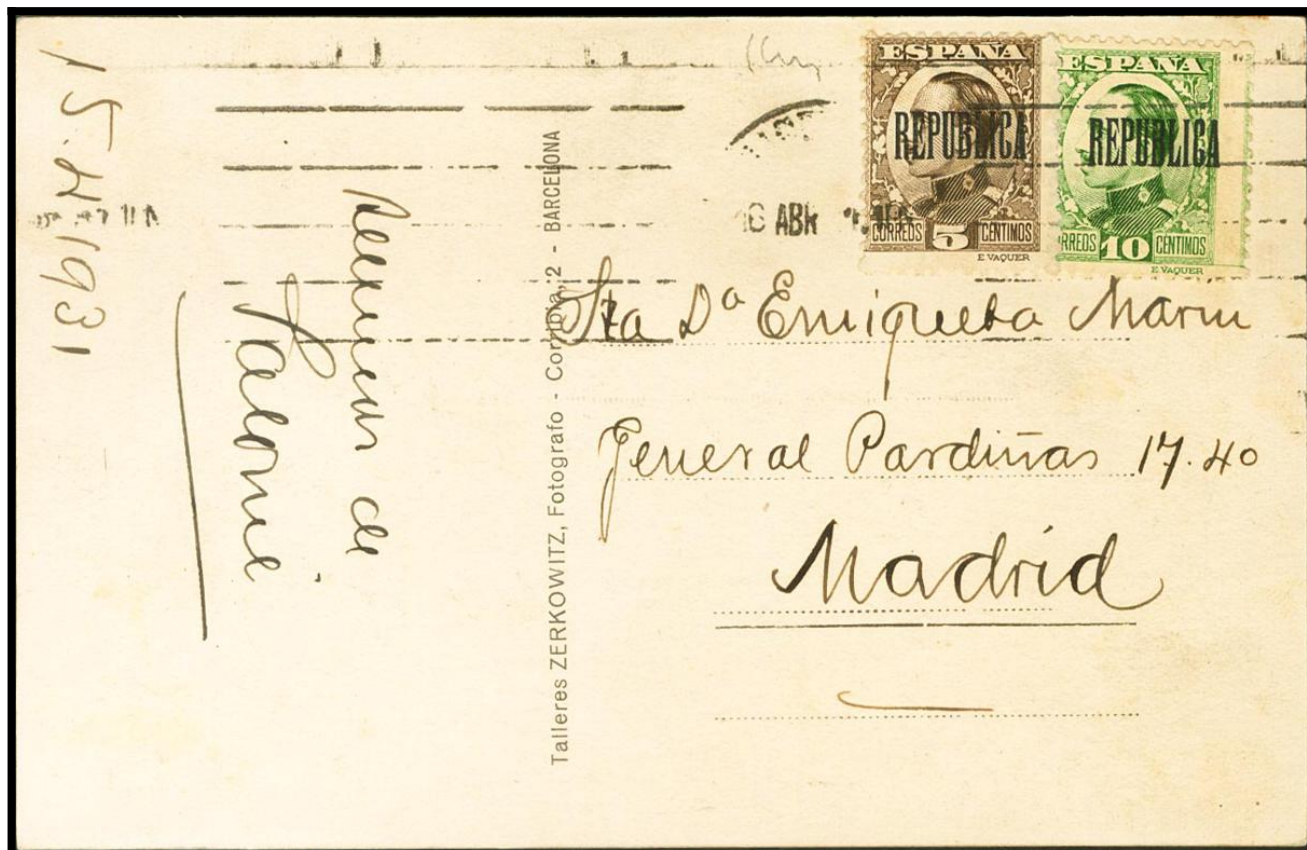 15.4.1931
de
Talleres ZERKOWITZ, Fotografo - Corribia, 2 - BARCELONA
16 ABR
ESPAÑA
REPUBLICA
CORREOS 5 CENTIMOS
E. VAQUER
ESPAÑA
REPUBLICA
CORREOS 10 CENTIMOS
E. VAQUER
Sta Dª Enriqueta Marin
General Pardiñas 17.40
Madrid